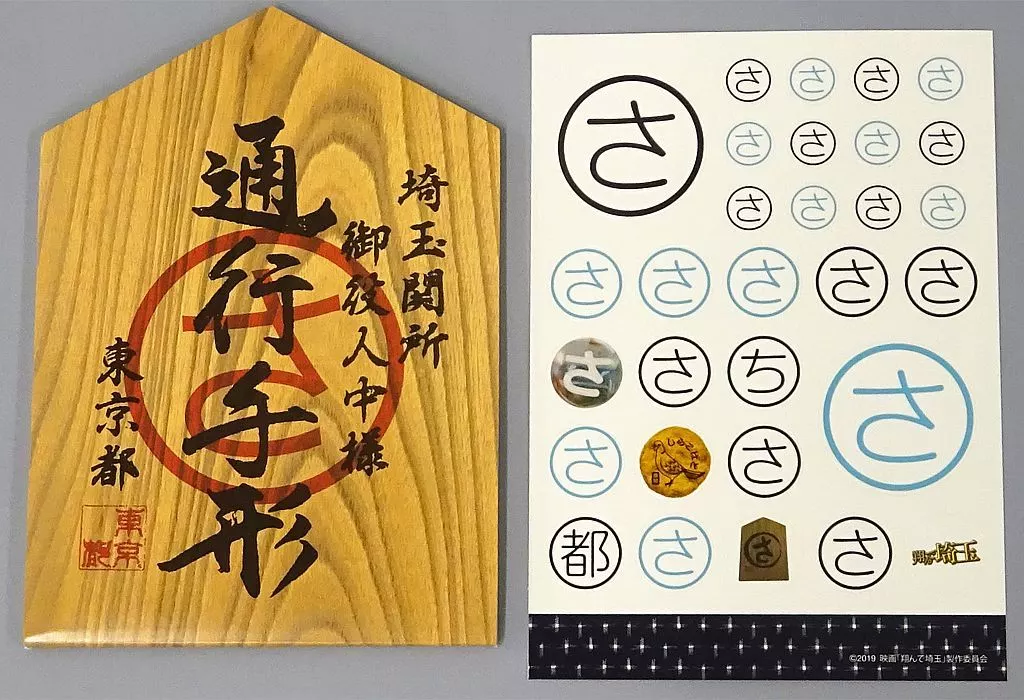 埼玉関所
御役人中様
通行手形
さ
東京都
東京都
さ さ さ さ さ
さ さ さ さ
さ さ さ さ
さ さ さ さ さ
さ さ ち さ
さ しらこばと さ
都 さ さ さ 翔んで埼玉
©2019 映画「翔んで埼玉」製作委員会